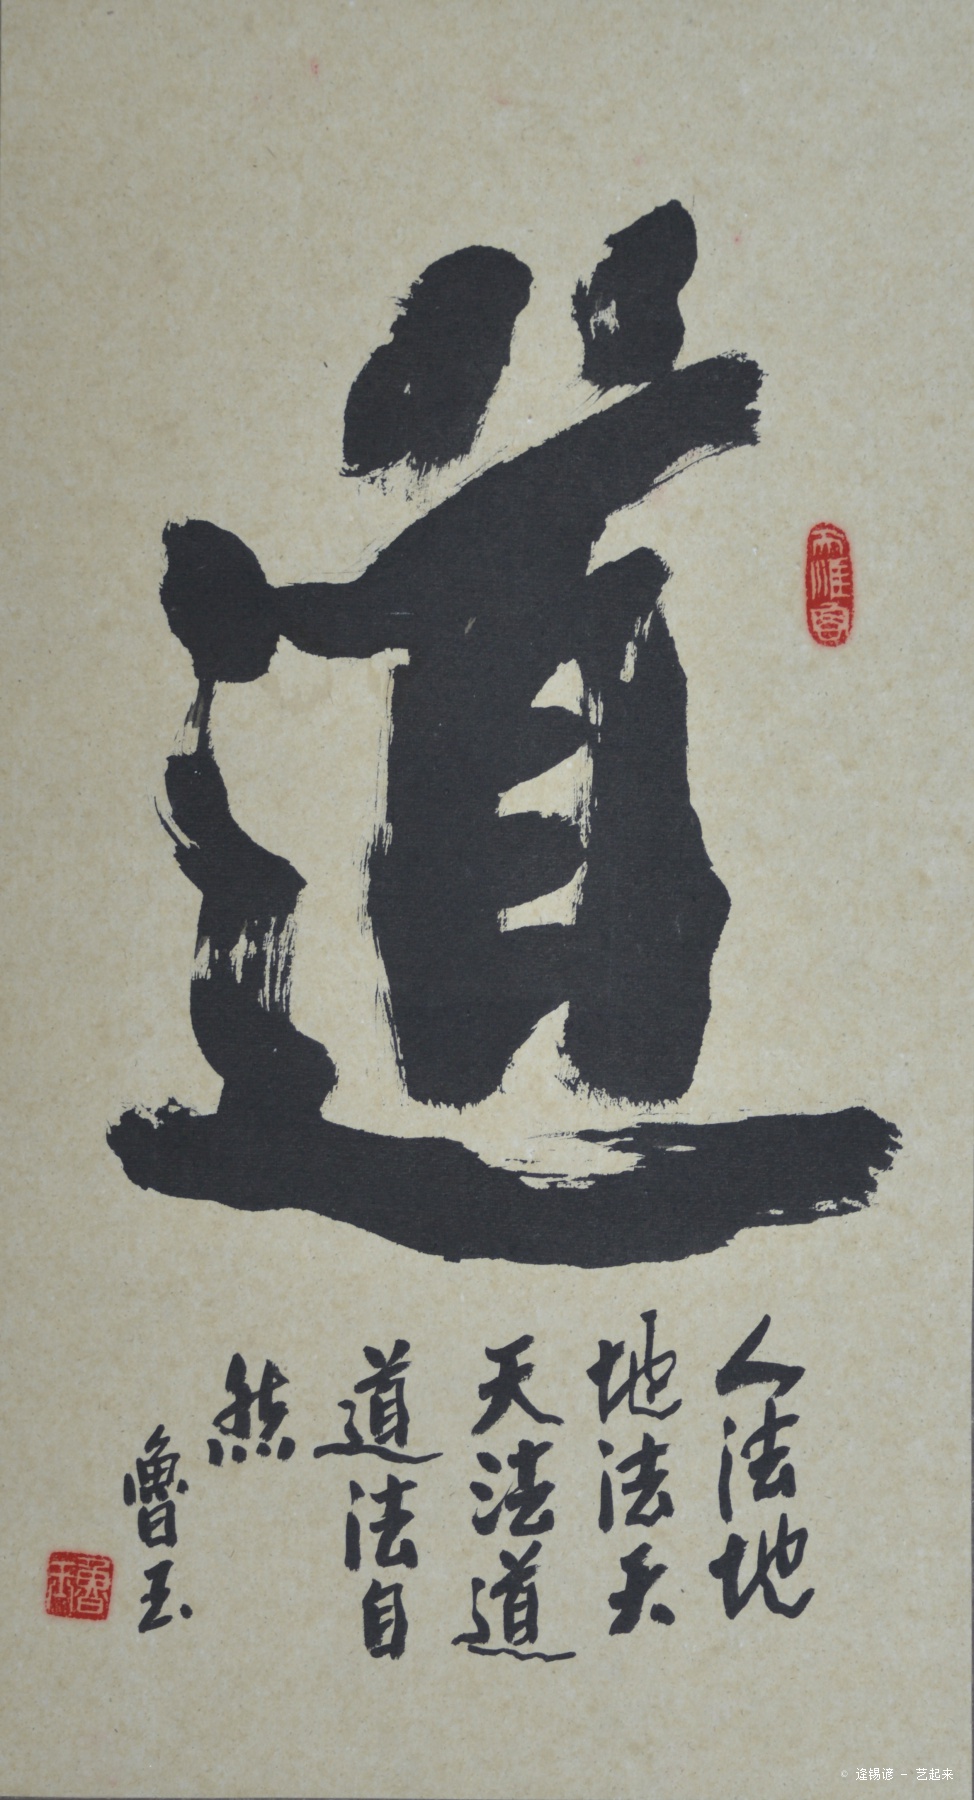 道
人法地
地法天
天法道
道法自
然
魯玉
© 逄锡谚 - 艺起来